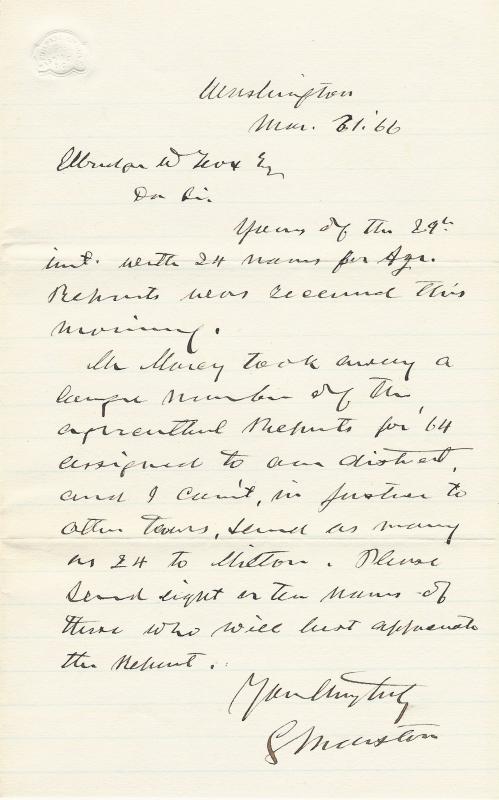 Washington
Mar. 31. '66
Elbridge W Fox Esq
Dr Sir.
Yours of the 29th
inst. with 24 names for Agr.
Reports was received this
morning.
Mr Marcy took away a
large number of the
agricultural Reports for '64
assigned to our district,
and I can't, in justice to
other towns, send as many
as 24 to Milton. Please
send eight or ten names of
those who will best appreciate
the Report.
Yours truly
G Marston